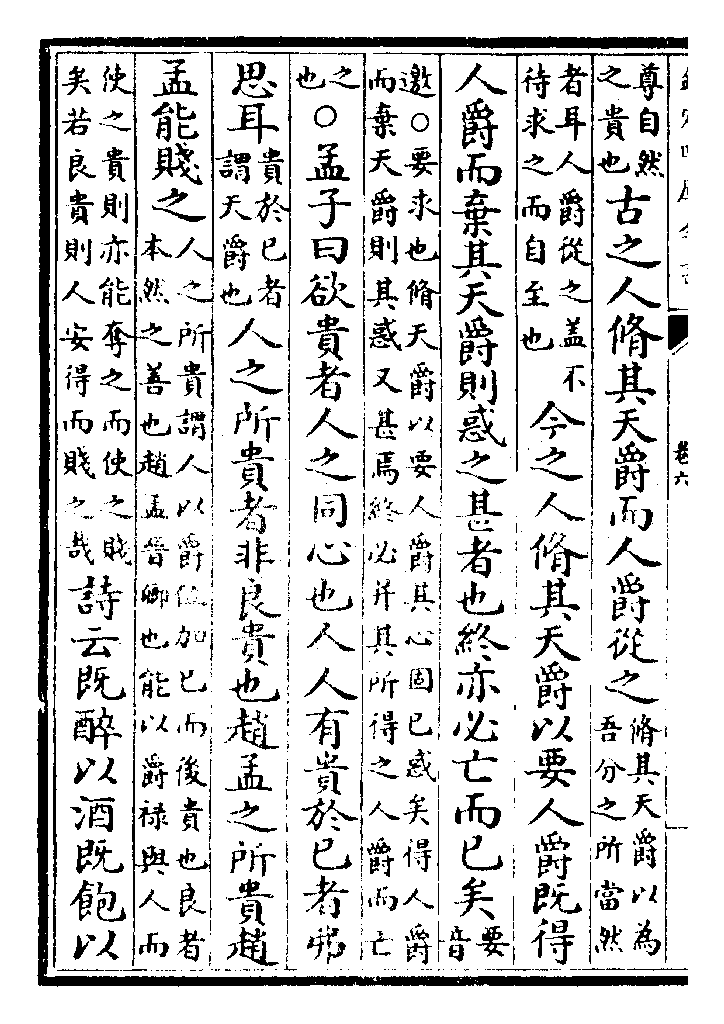 欽定四庫全書 卷六
尊自然之貴也古之人脩其天爵而人爵從之脩其天爵以為吾分之所當然
者耳人爵從之盖不待求之而自至也今之人脩其天爵以要人爵既得
人爵而棄其天爵則惑之甚者也終亦必亡而已矣要音
邀○要求也脩天爵以要人爵其心固已惑矣得人爵而棄天爵則其惑又甚焉終必并其所得之人爵而亡
之也○孟子曰欲貴者人之同心也人人有貴於已者弗
思耳貴於已者謂天爵也人之所貴者非良貴也趙孟之所貴趙
孟能賤之人之所貴謂人以爵位加已而後貴也良者本然之善也趙孟晉卿也能以爵禄與人而
使之貴則亦能奪之而使之賤矣若良貴則人安得而賤之哉詩云既醉以酒既飽以